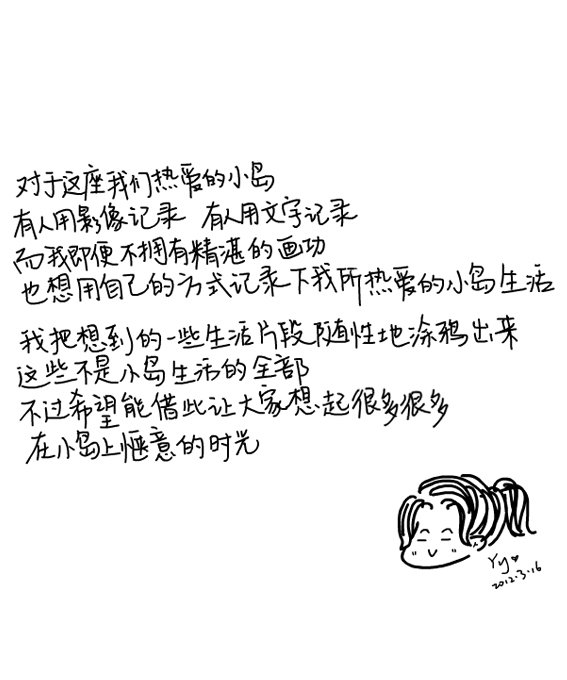 对于这座我们热爱的小岛
有人用影像记录 有人用文字记录
而我即便不拥有精湛的画功
也想用自己的方式记录下我所热爱的小岛生活
我把想到的一些生活片段随性地涂鸦出来
这些不是小岛生活的全部
不过希望能借此让大家想起很多很多
在小岛上惬意的时光
Yy♥
2012.3.16